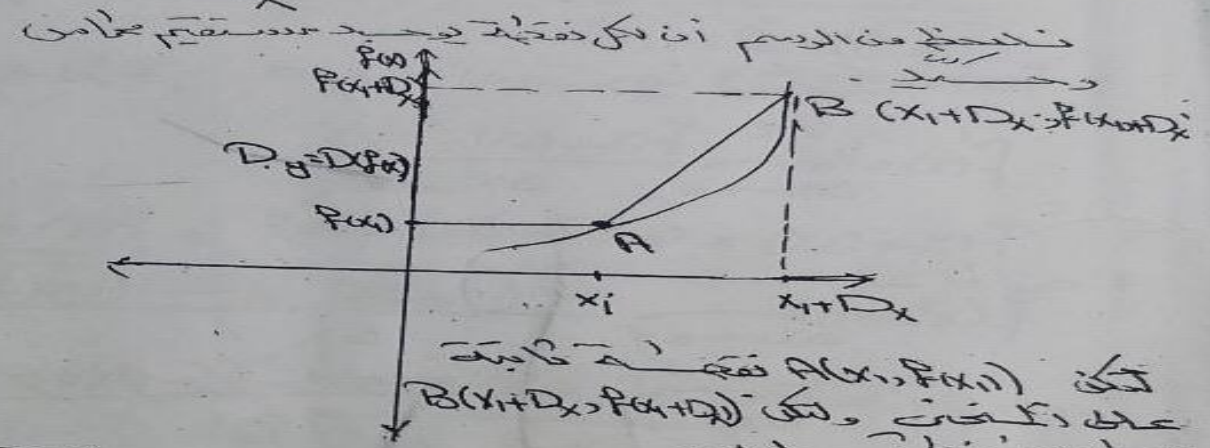 نلاحظ من الرسم أن لكل نقطة يوجد مستقيم مماس
وحيد.
f(x)
f(x₁+Dx)
B (x₁+Dx, f(x₁+Dx
Dy=D(f(x)
f(x₁)
A
x₁
x₁+Dx
لتكن A(x₁, f(x₁)) نقطة ثابتة
على المنحنى ولتكن B(x₁+Dx, f(x₁+Dx)